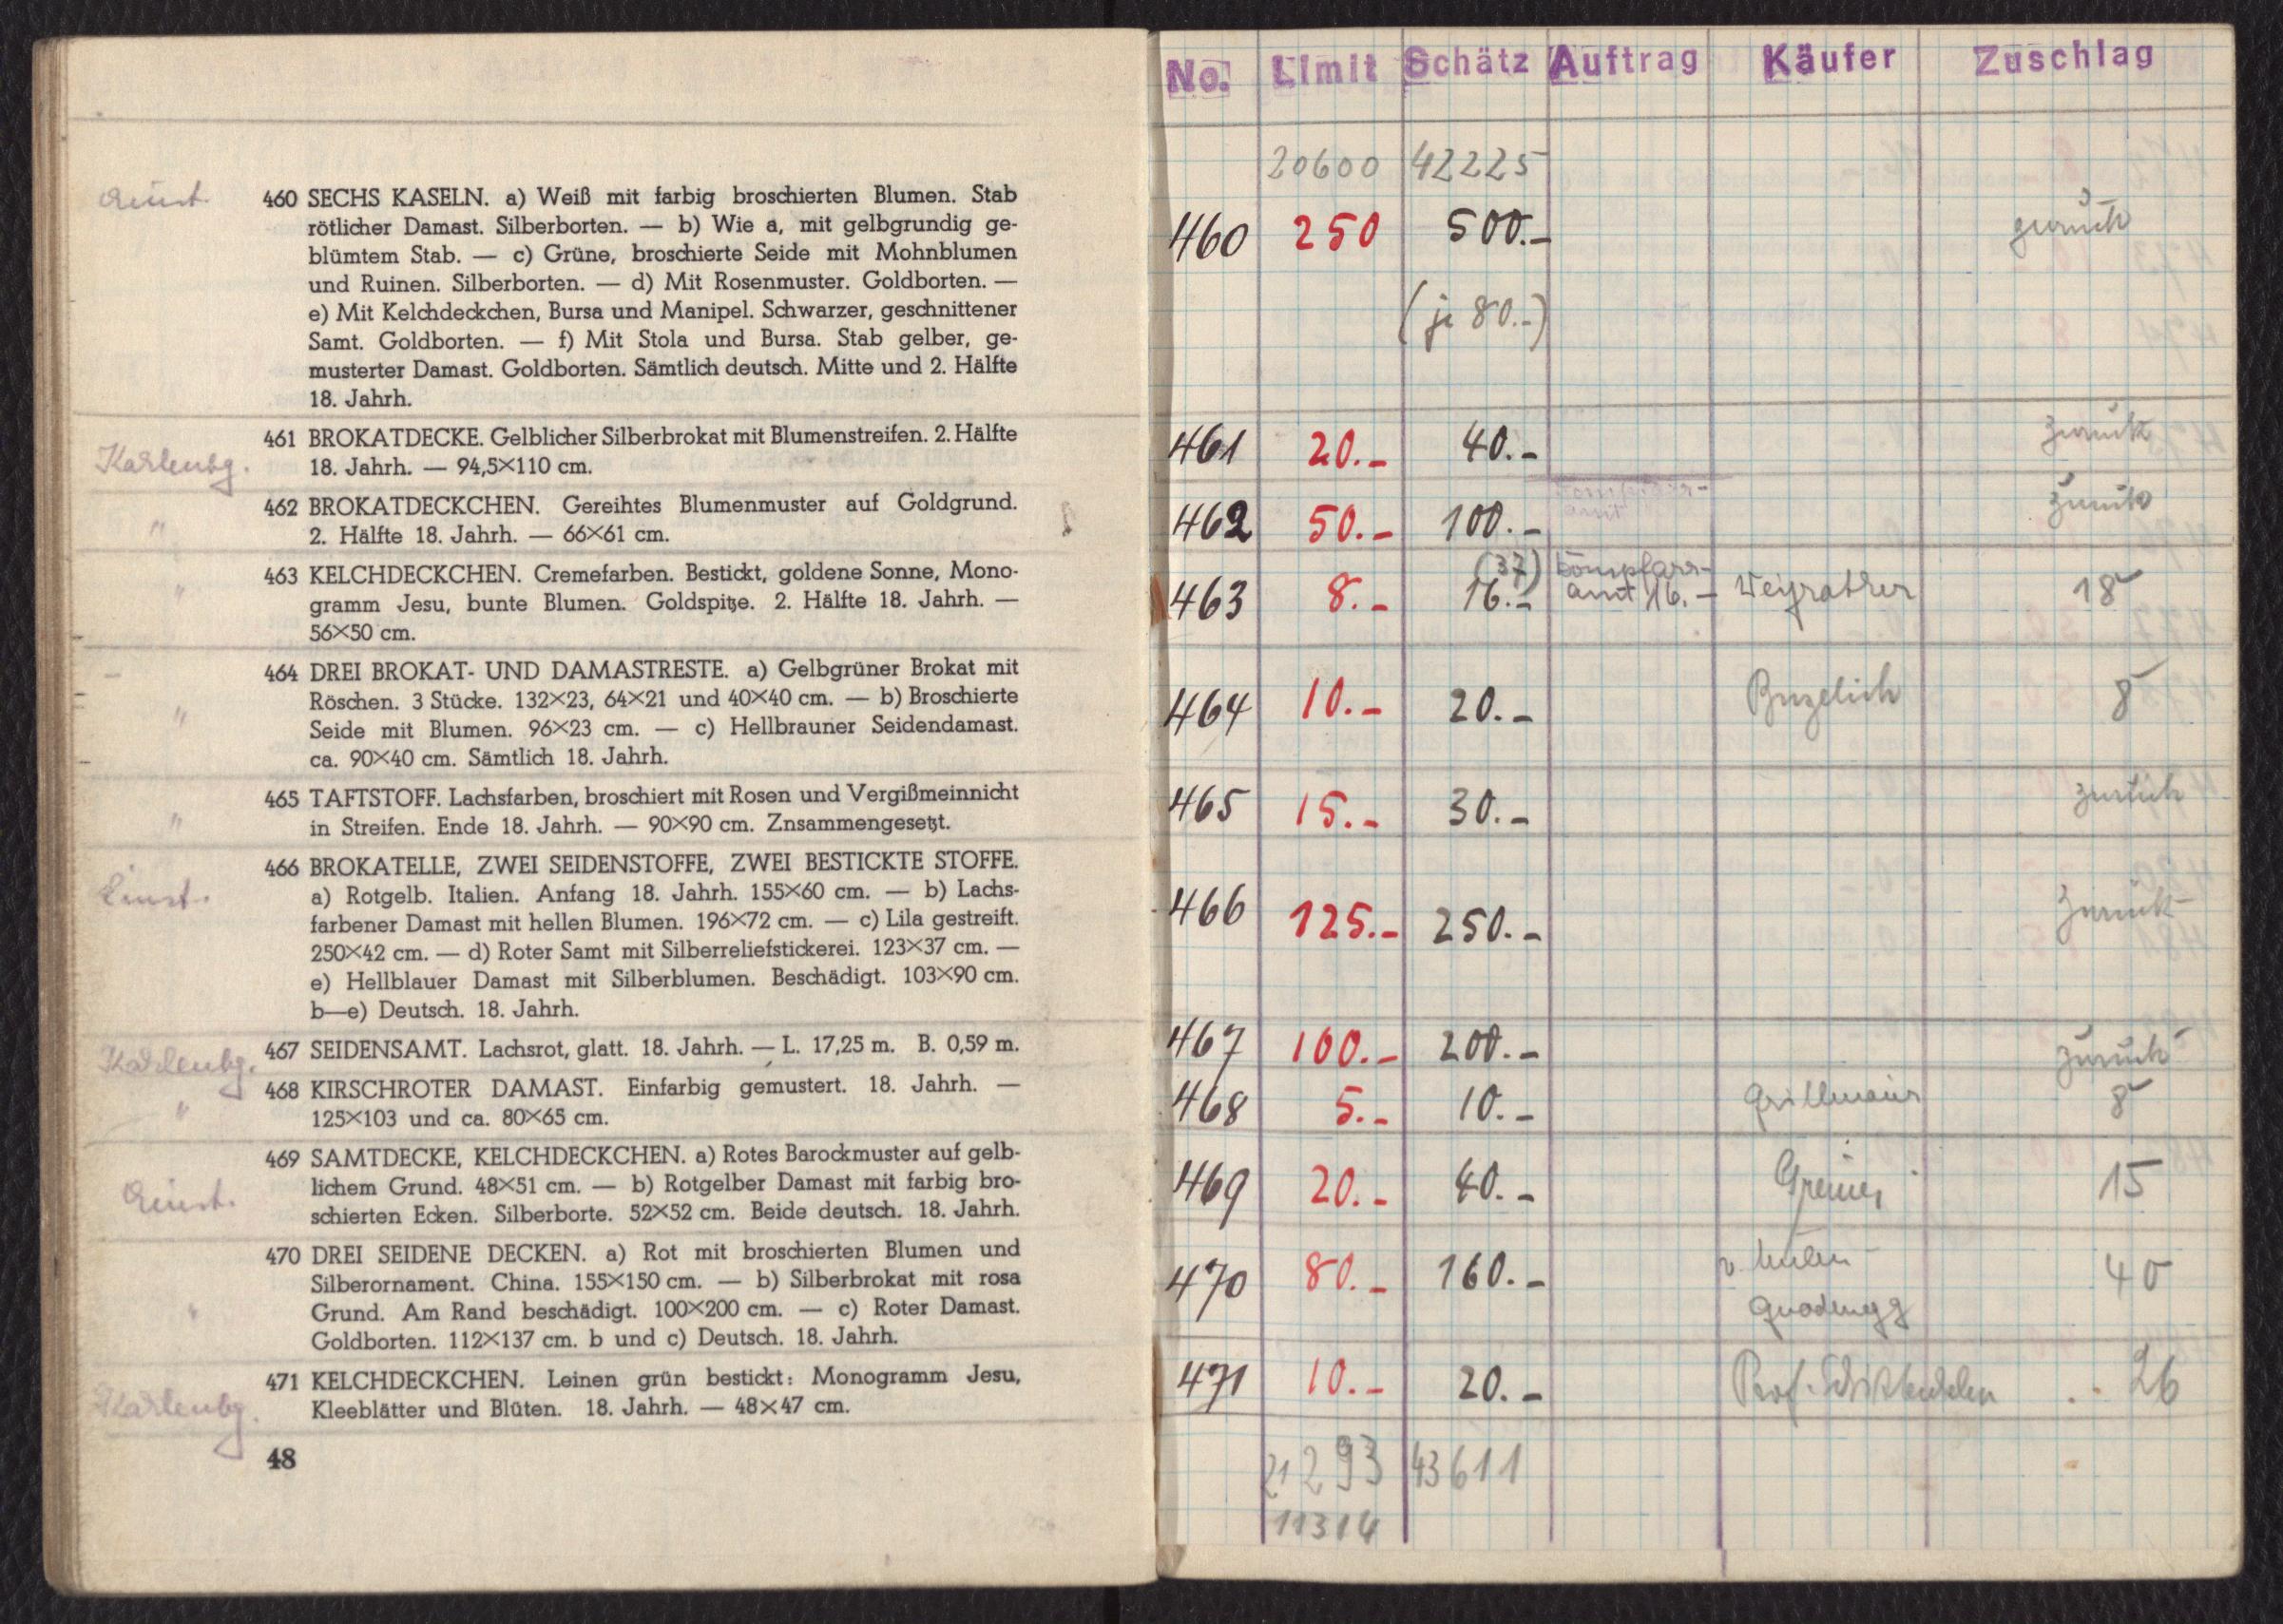 460 SECHS KASELN. a) Weiß mit farbig broschierten Blumen. Stab
rötlicher Damast. Silberborten. — b) Wie a, mit gelbgrundig ge-
blümtem Stab. — c) Grüne, broschierte Seide mit Mohnblumen
und Ruinen. Silberborten. — d) Mit Rosenmuster. Goldborten. —
e) Mit Kelchdeckchen, Bursa und Manipel. Schwarzer, geschnittener
Samt. Goldborten. — f) Mit Stola und Bursa. Stab gelber, ge-
musterter Damast. Goldborten. Sämtlich deutsch. Mitte und 2. Hälfte
18. Jahrh.
461 BROKATDECKE. Gelblicher Silberbrokat mit Blumenstreifen. 2. Hälfte
Karlenbg. 18. Jahrh. — 94,5×110 cm.
462 BROKATDECKCHEN. Gereihtes Blumenmuster auf Goldgrund.
" 2. Hälfte 18. Jahrh. — 66×61 cm.
463 KELCHDECKCHEN. Cremefarben. Bestickt, goldene Sonne, Mono-
" gramm Jesu, bunte Blumen. Goldspitze. 2. Hälfte 18. Jahrh. —
56×50 cm.
464 DREI BROKAT- UND DAMASTRESTE. a) Gelbgrüner Brokat mit
Röschen. 3 Stücke. 132×23, 64×21 und 40×40 cm. — b) Broschierte
" Seide mit Blumen. 96×23 cm. — c) Hellbrauner Seidendamast.
ca. 90×40 cm. Sämtlich 18. Jahrh.
465 TAFTSTOFF. Lachsfarben, broschiert mit Rosen und Vergißmeinnicht
" in Streifen. Ende 18. Jahrh. — 90×90 cm. Znsammengesetzt.
466 BROKATELLE, ZWEI SEIDENSTOFFE, ZWEI BESTICKTE STOFFE.
a) Rotgelb. Italien. Anfang 18. Jahrh. 155×60 cm. — b) Lachs-
farbener Damast mit hellen Blumen. 196×72 cm. — c) Lila gestreift.
250×42 cm. — d) Roter Samt mit Silberreliefstickerei. 123×37 cm. —
e) Hellblauer Damast mit Silberblumen. Beschädigt. 103×90 cm.
b—e) Deutsch. 18. Jahrh.
Karlenbg. 467 SEIDENSAMT. Lachsrot, glatt. 18. Jahrh. — L. 17,25 m. B. 0,59 m.
468 KIRSCHROTER DAMAST. Einfarbig gemustert. 18. Jahrh. —
" 125×103 und ca. 80×65 cm.
469 SAMTDECKE, KELCHDECKCHEN. a) Rotes Barockmuster auf gelb-
lichem Grund. 48×51 cm. — b) Rotgelber Damast mit farbig bro-
schierten Ecken. Silberborte. 52×52 cm. Beide deutsch. 18. Jahrh.
470 DREI SEIDENE DECKEN. a) Rot mit broschierten Blumen und
Silberornament. China. 155×150 cm. — b) Silberbrokat mit rosa
" Grund. Am Rand beschädigt. 100×200 cm. — c) Roter Damast.
Goldborten. 112×137 cm. b und c) Deutsch. 18. Jahrh.
471 KELCHDECKCHEN. Leinen grün bestickt: Monogramm Jesu,
Karlenbg. Kleeblätter und Blüten. 18. Jahrh. — 48×47 cm.
48
No. Limit Schätz Auftrag Käufer Zuschlag
20600 42225
460 250 500.- zurück
(je 80.-)
461 20.- 40.- zurück
462 50.- 100.- zurück
(37) Dompfarr-
463 8.- 16.- amt 16.- Weyrather 18
464 10.- 20.- 8
465 15.- 30.- zurück
466 125.- 250.- zurück
467 100.- 200.- zurück
468 5.- 10.- Grillmair 8
469 20.- 40.- Greiner 15
470 80.- 160.- v. 40
471 10.- 20.- Prof. 26
21293 43611
11314